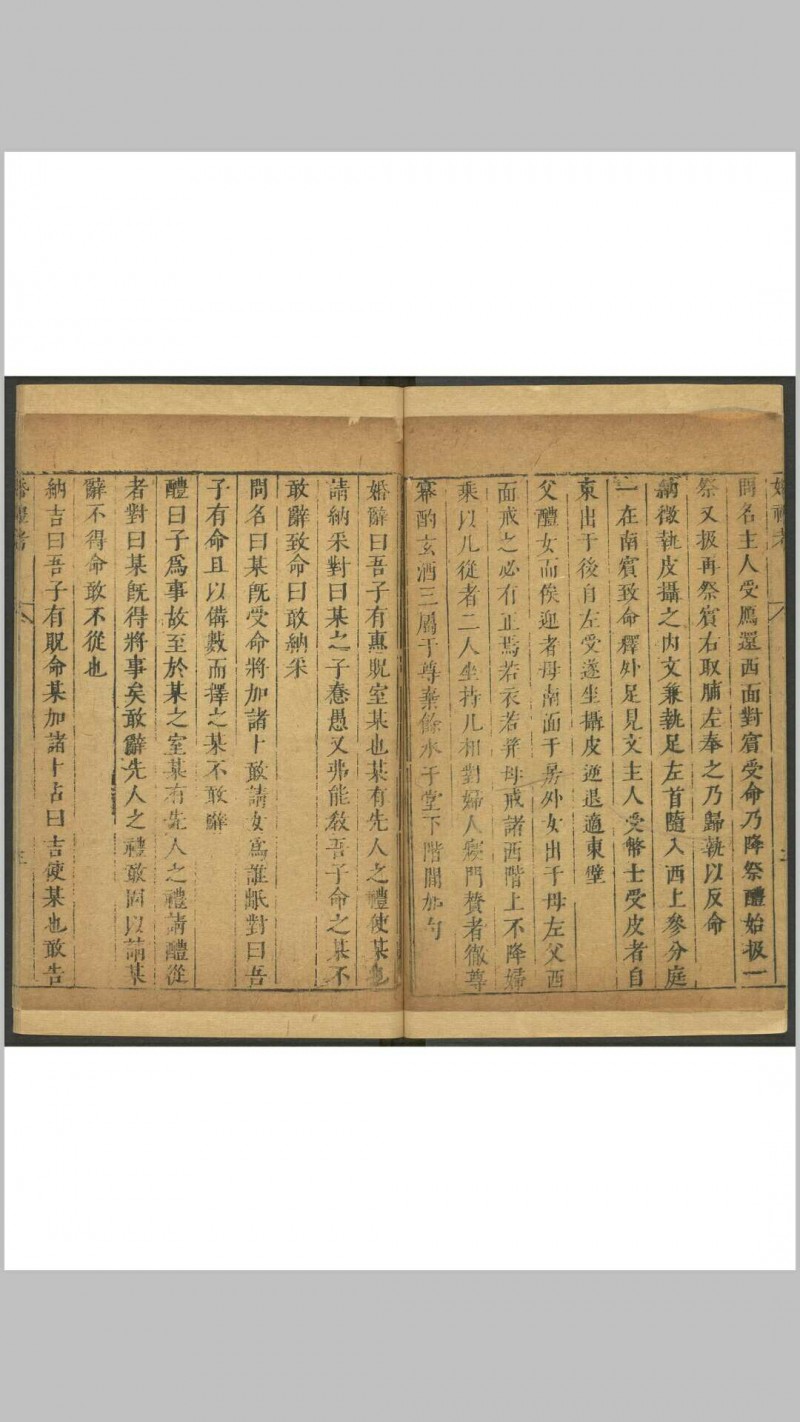 問名主人受鴈還西面對賓受命乃降祭醴始扱一
祭又扱再祭賓右取脯左奉之乃歸執以反命
納徵執皮攝之內文兼執足左首隨入西上參分庭
一在南賓致命釋外足見文主人受幣士受皮者自
東出于後自左受遂坐攝皮逆退適東壁
父醴女而俟迎者母南面于房外女出于母左父西
面戒之必有正焉若衣若筓母戒諸西階上不降婦
乘以几從者二人坐持几相對婦人寢門贊者徹尊
冪酌玄酒三屬于尊棄餘水于堂下階閒加勺
婚辭曰吾子有惠貺室某也某有先人之禮使某也
請納采對曰某之子惷愚又弗能教吾子命之某不
敢辭致命曰敢納采
問名曰某旣受命將加諸卜敢請女爲誰氏對曰吾
子有命且以備數而擇之某不敢辭
醴曰子爲事故至於某之室某有先人之禮請醴從
者對曰某旣得將事矣敢辭先人之禮敢固以請某
辭不得命敢不從也
納吉曰吾子有貺命某加諸卜占曰吉使某也敢告